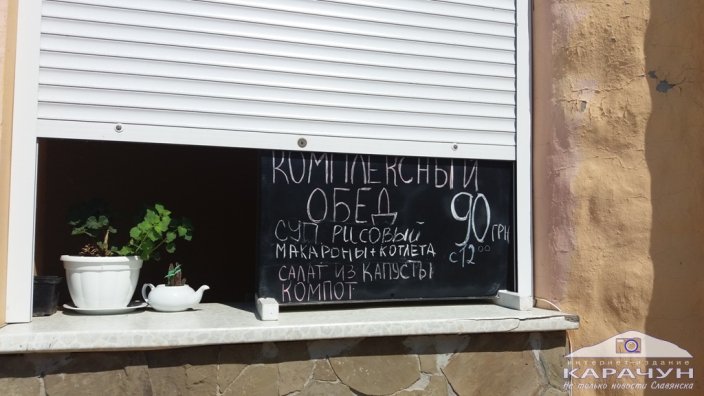 КОМПЛЕКСНЫЙ
ОБЕД
90 ГРН
СУП РИСОВЫЙ
МАКАРОНЫ+КОТЛЕТА
С 12 00
САЛАТ ИЗ КАПУСТЫ
КОМПОТ
интернет-издание
КАРАЧУН
Не только новости Славянска